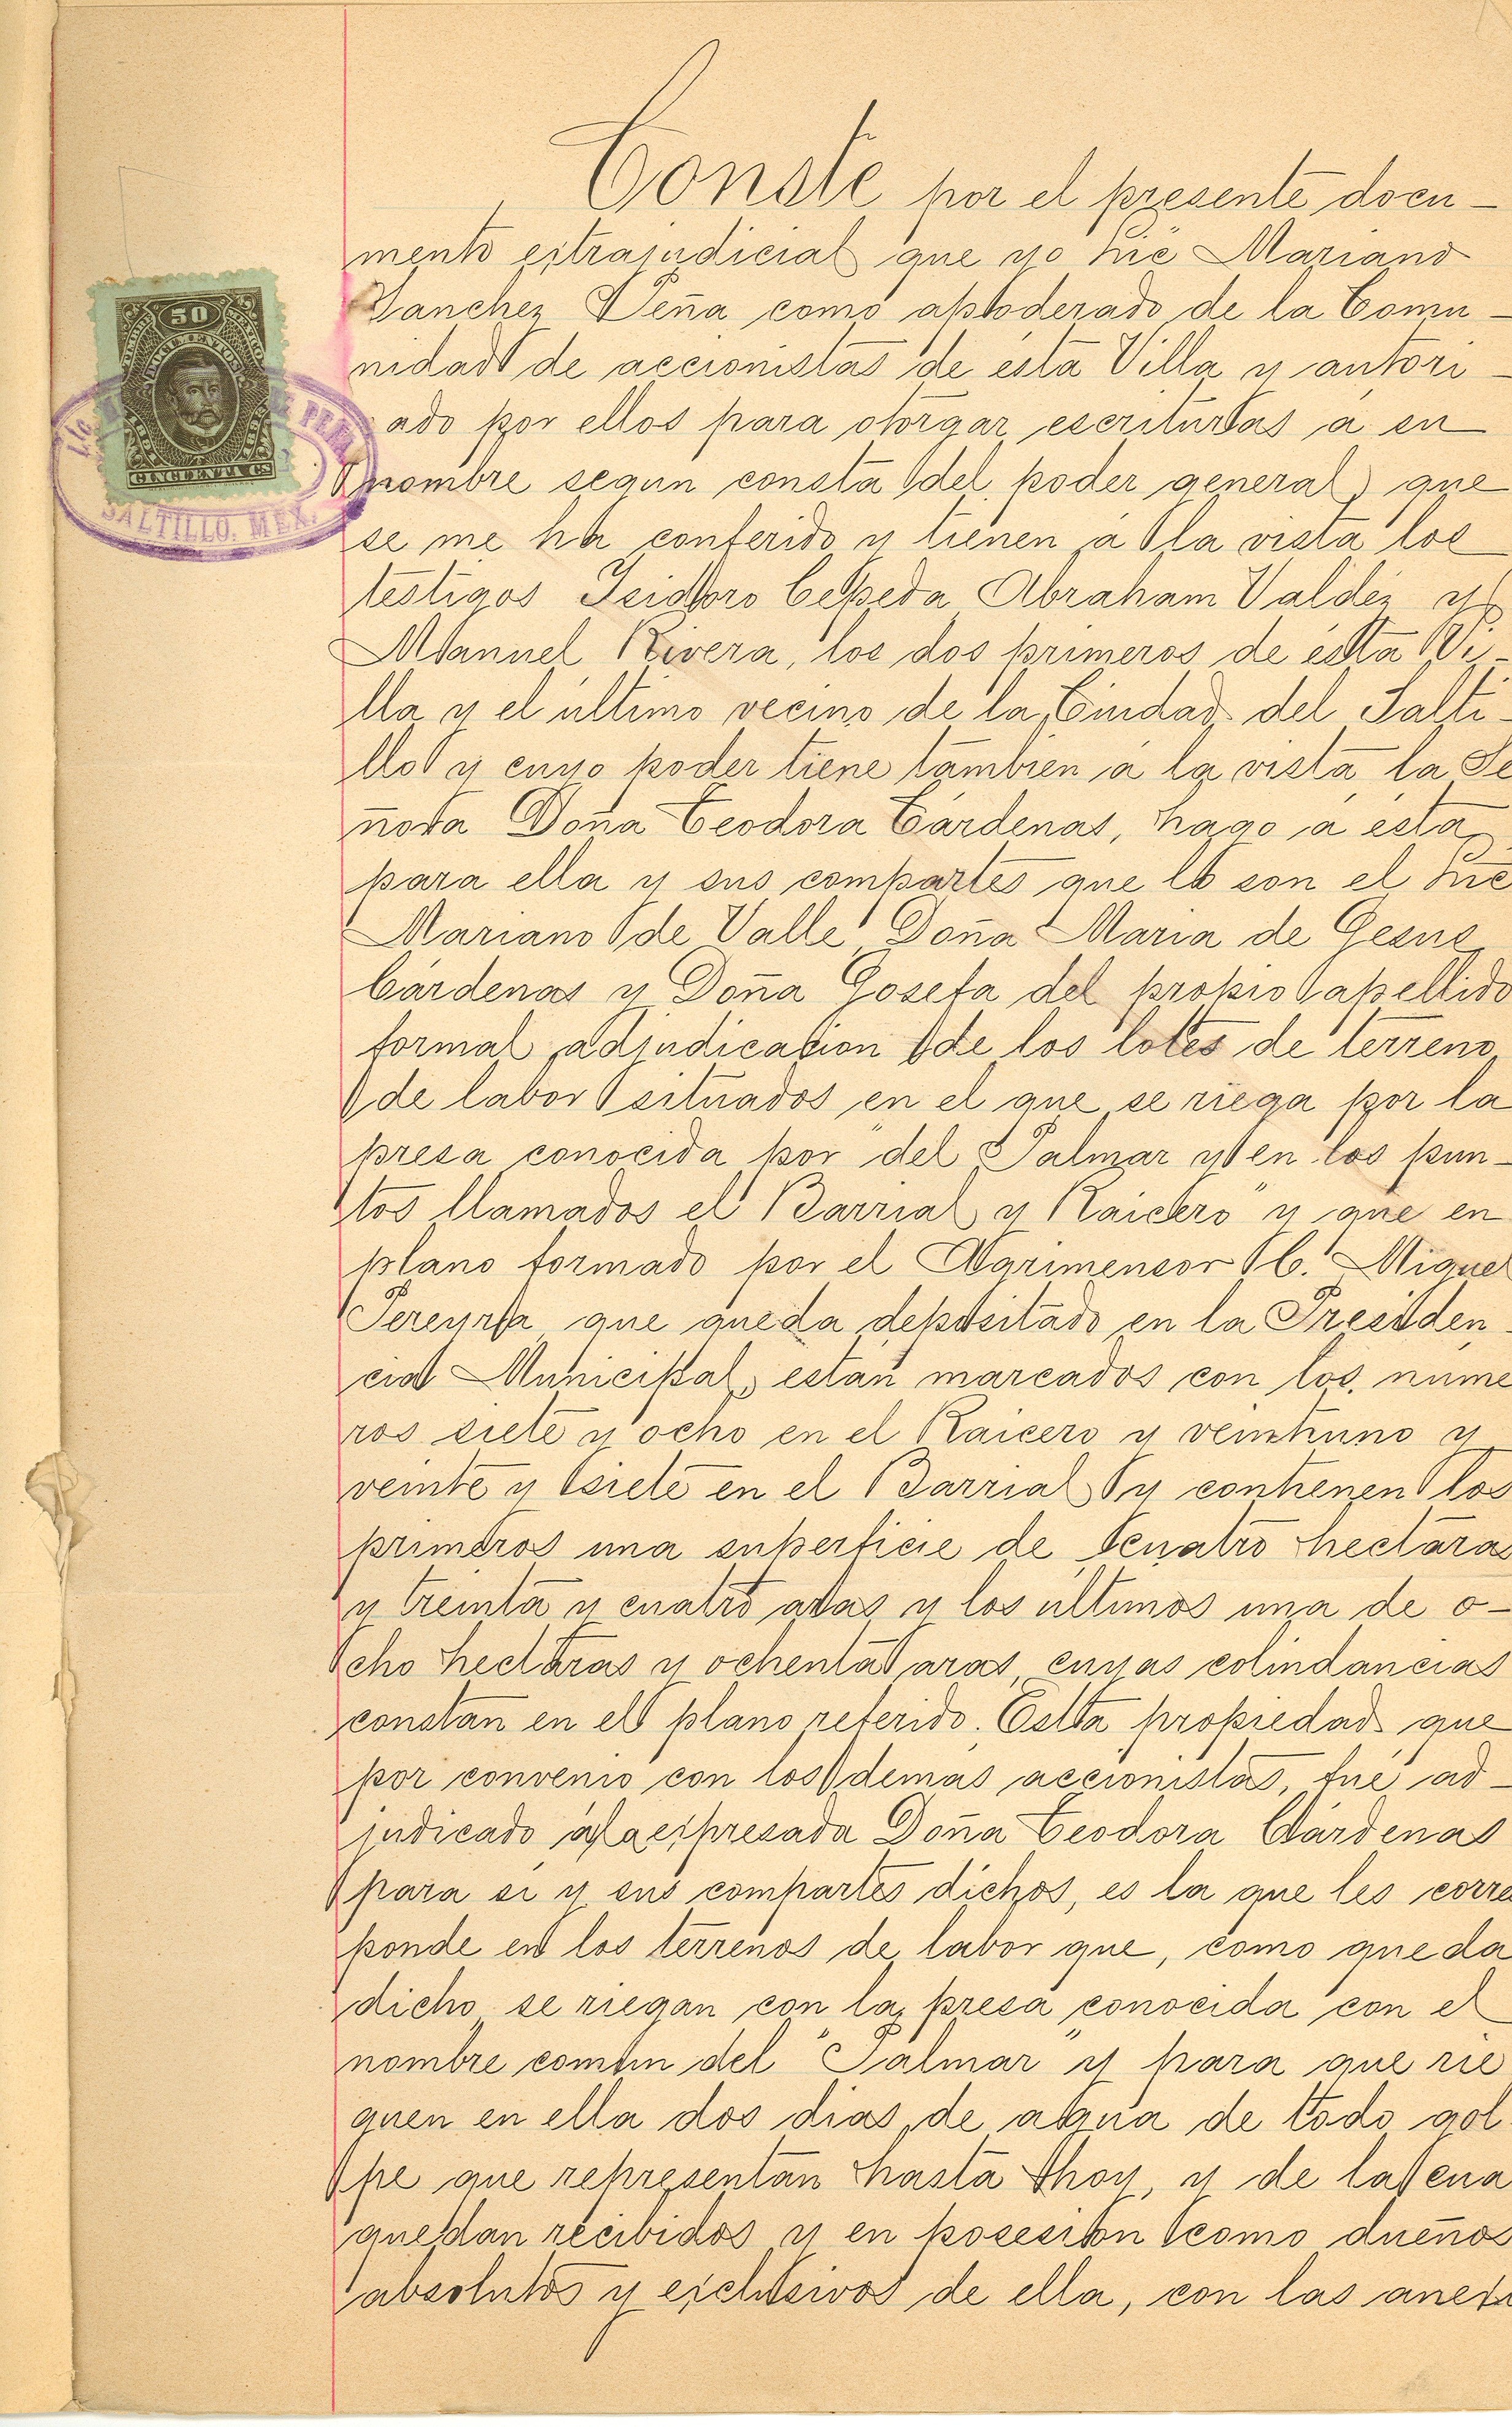 Conste por el presente docu-
mento estrajudicial que yo Lic Mariano
Sanchez Peña como apoderado de la Comu-
nidad de accionistas de ésta Villa y autori-
ado por ellos para otorgar escrituras á su
nombre segun consta del poder general, que
se me ha conferido y tienen á la vista los
testigos Isidoro Cepeda Abraham Valdéz y
Manuel Rivera, los dos primeros de ésta Vi-
lla y el último vecino de la Ciudad del Salti-
llo y cuyo poder tiene tambien á la vista la Se
ñora Doña Teodora Cárdenas, hago á ésta
para ella y sus compartes que lo son el Lic
Mariano de Valle, Doña Maria de Jesus
Cárdenas y Doña Josefa del propio apellido
formal adjudicacion de los lotes de terreno
de labor situados en el que se riega por la
presa conocida por "del Palmar y en los pun-
tos llamados el Barrial y Raicero" y que en
plano formado por el Agrimensor C. Miguel
Pereyra que queda depositado en la Presiden-
cia Municipal, están marcados con los núme
ros siete y ocho en el Raicero y veintiuno y
veinte y siete en el Barrial y contienen los
primeros una superficie de cuatro hectaras
y treinta y cuatro aras y los últimos una de o-
cho hectaras y ochenta aras, cuyas colindancias
constan en el plano referido. Esta propiedad que
por convenio con los demas accionistas, fué ad-
judicado á la expresada Doña Teodora Cárdenas
para si y sus compartes dichos, es la que les corre
ponde en los terrenos de labor que, como queda
dicho se riegan con la presa conocida con el
nombre comun del "Palmar" y para que rie
guen en ella dos dias de agua de todo gol
pe que representan hasta hoy, y de la cua
quedan recibidos y en posesion como dueños
absolutos y exclusivos de ella, con las anexi
50
DOCUMENTOS
CINCUENTA CS
DE PEÑA
SALTILLO. MEX.